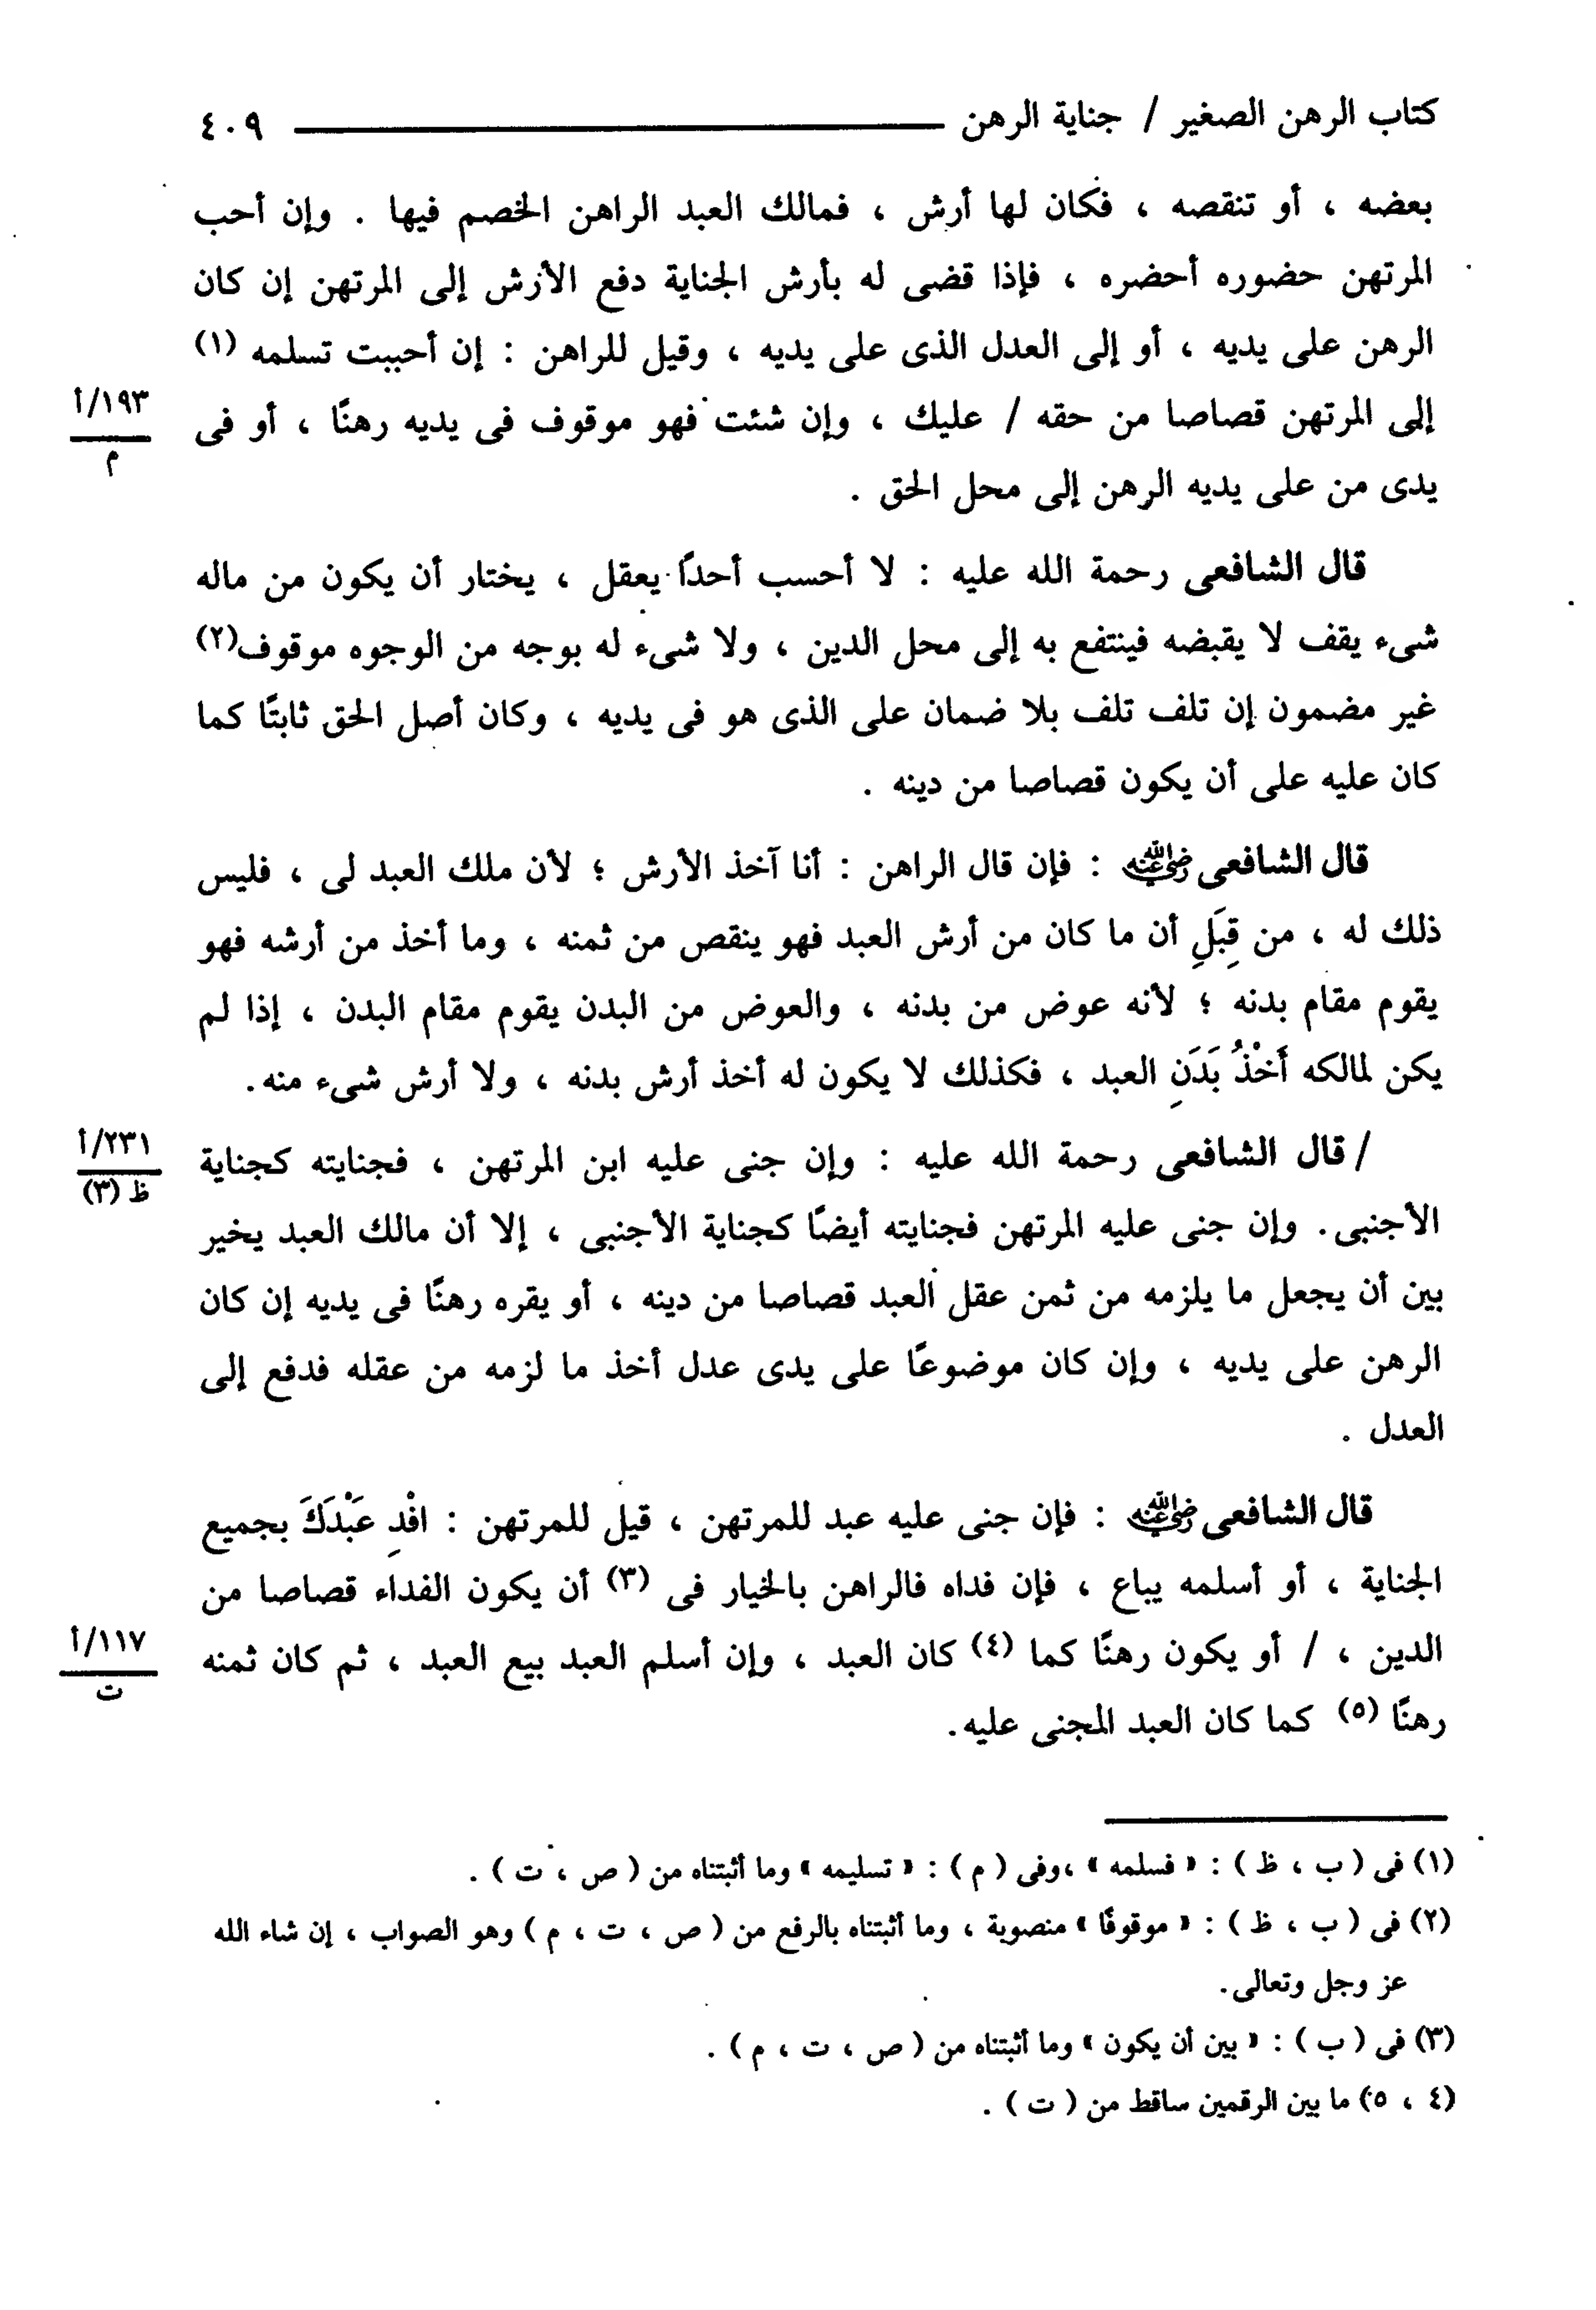 كتاب الرهن الصغير / جناية الرهن ٤٠٩
بعضه ، أو تنقصه ، فكان لها أرش ، فمالك العبد الراهن الخصم فيها . وإن أحب
المرتهن حضوره أحضره ، فإذا قضى له بأرش الجناية دفع الأرش إلى المرتهن إن كان
الرهن على يديه ، أو إلى العدل الذى على يديه ، وقيل للراهن : إن أحببت تسلمه (١)
إلى المرتهن قصاصا من حقه / عليك ، وإن شئت فهو موقوف فى يديه رهنًا ، أو فى
١٩٣/أ
م
يدى من على يديه الرهن إلى محل الحق .
قال الشافعى رحمة الله عليه : لا أحسب أحدًا يعقل ، يختار أن يكون من ماله
شىء يقف لا يقبضه فينتفع به إلى محل الدين ، ولا شىء له بوجه من الوجوه موقوف(٢)
غير مضمون إن تلف تلف بلا ضمان على الذى هو فى يديه ، وكان أصل الحق ثابتًا كما
كان عليه على أن يكون قصاصا من دينه .
قال الشافعى رضي الله عنه : فإن قال الراهن : أنا آخذ الأرش ؛ لأن ملك العبد لى ، فليس
ذلك له ، من قِبَلِ أن ما كان من أرش العبد فهو ينقص من ثمنه ، وما أخذ من أرشه فهو
يقوم مقام بدنه ؛ لأنه عوض من بدنه ، والعوض من البدن يقوم مقام البدن ، إذا لم
يكن لمالكه أَخْذُ بَدَنِ العبد ، فكذلك لا يكون له أخذ أرش بدنه ، ولا أرش شىء منه.
/ قال الشافعى رحمة الله عليه : وإن جنى عليه ابن المرتهن ، فجنايته كجناية
٢٣١/أ
ظ (٣)
الأجنبى. وإن جنى عليه المرتهن فجنايته أيضًا كجناية الأجنبى ، إلا أن مالك العبد يخير
بين أن يجعل ما يلزمه من ثمن عقل العبد قصاصا من دينه ، أو يقره رهنًا فى يديه إن كان
الرهن على يديه ، وإن كان موضوعًا على يدى عدل أخذ ما لزمه من عقله فدفع إلى
العدل .
قال الشافعى رضي الله عنه : فإن جنى عليه عبد للمرتهن ، قيل للمرتهن : افْدِ عَبْدَكَ بجميع
الجناية ، أو أسلمه يباع ، فإن فداه فالراهن بالخيار فى (٣) أن يكون الفداء قصاصا من
الدين ، / أو يكون رهنًا كما (٤) كان العبد ، وإن أسلم العبد بيع العبد ، ثم كان ثمنه
١١٧/أ
ت
رهنًا (٥) كما كان العبد المجنى عليه.
(١) فى ( ب ، ظ ) : « فسلمه » ،وفى ( م ) : « تسليمه » وما أثبتناه من ( ص ، ت ) .
(٢) فى ( ب ، ظ ) : « موقوفًا » منصوبة ، وما أثبتناه بالرفع من ( ص ، ت ، م ) وهو الصواب ، إن شاء الله
عز وجل وتعالى.
(٣) فى ( ب ) : « بين أن يكون » وما أثبتناه من ( ص ، ت ، م ) .
(٤ ، ٥) ما بين الرقمين ساقط من ( ت ) .